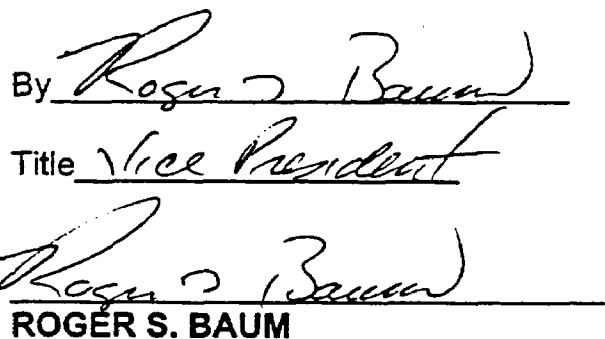 By Roger S Baum
Title Vice President
Roger S Baum
ROGER S. BAUM